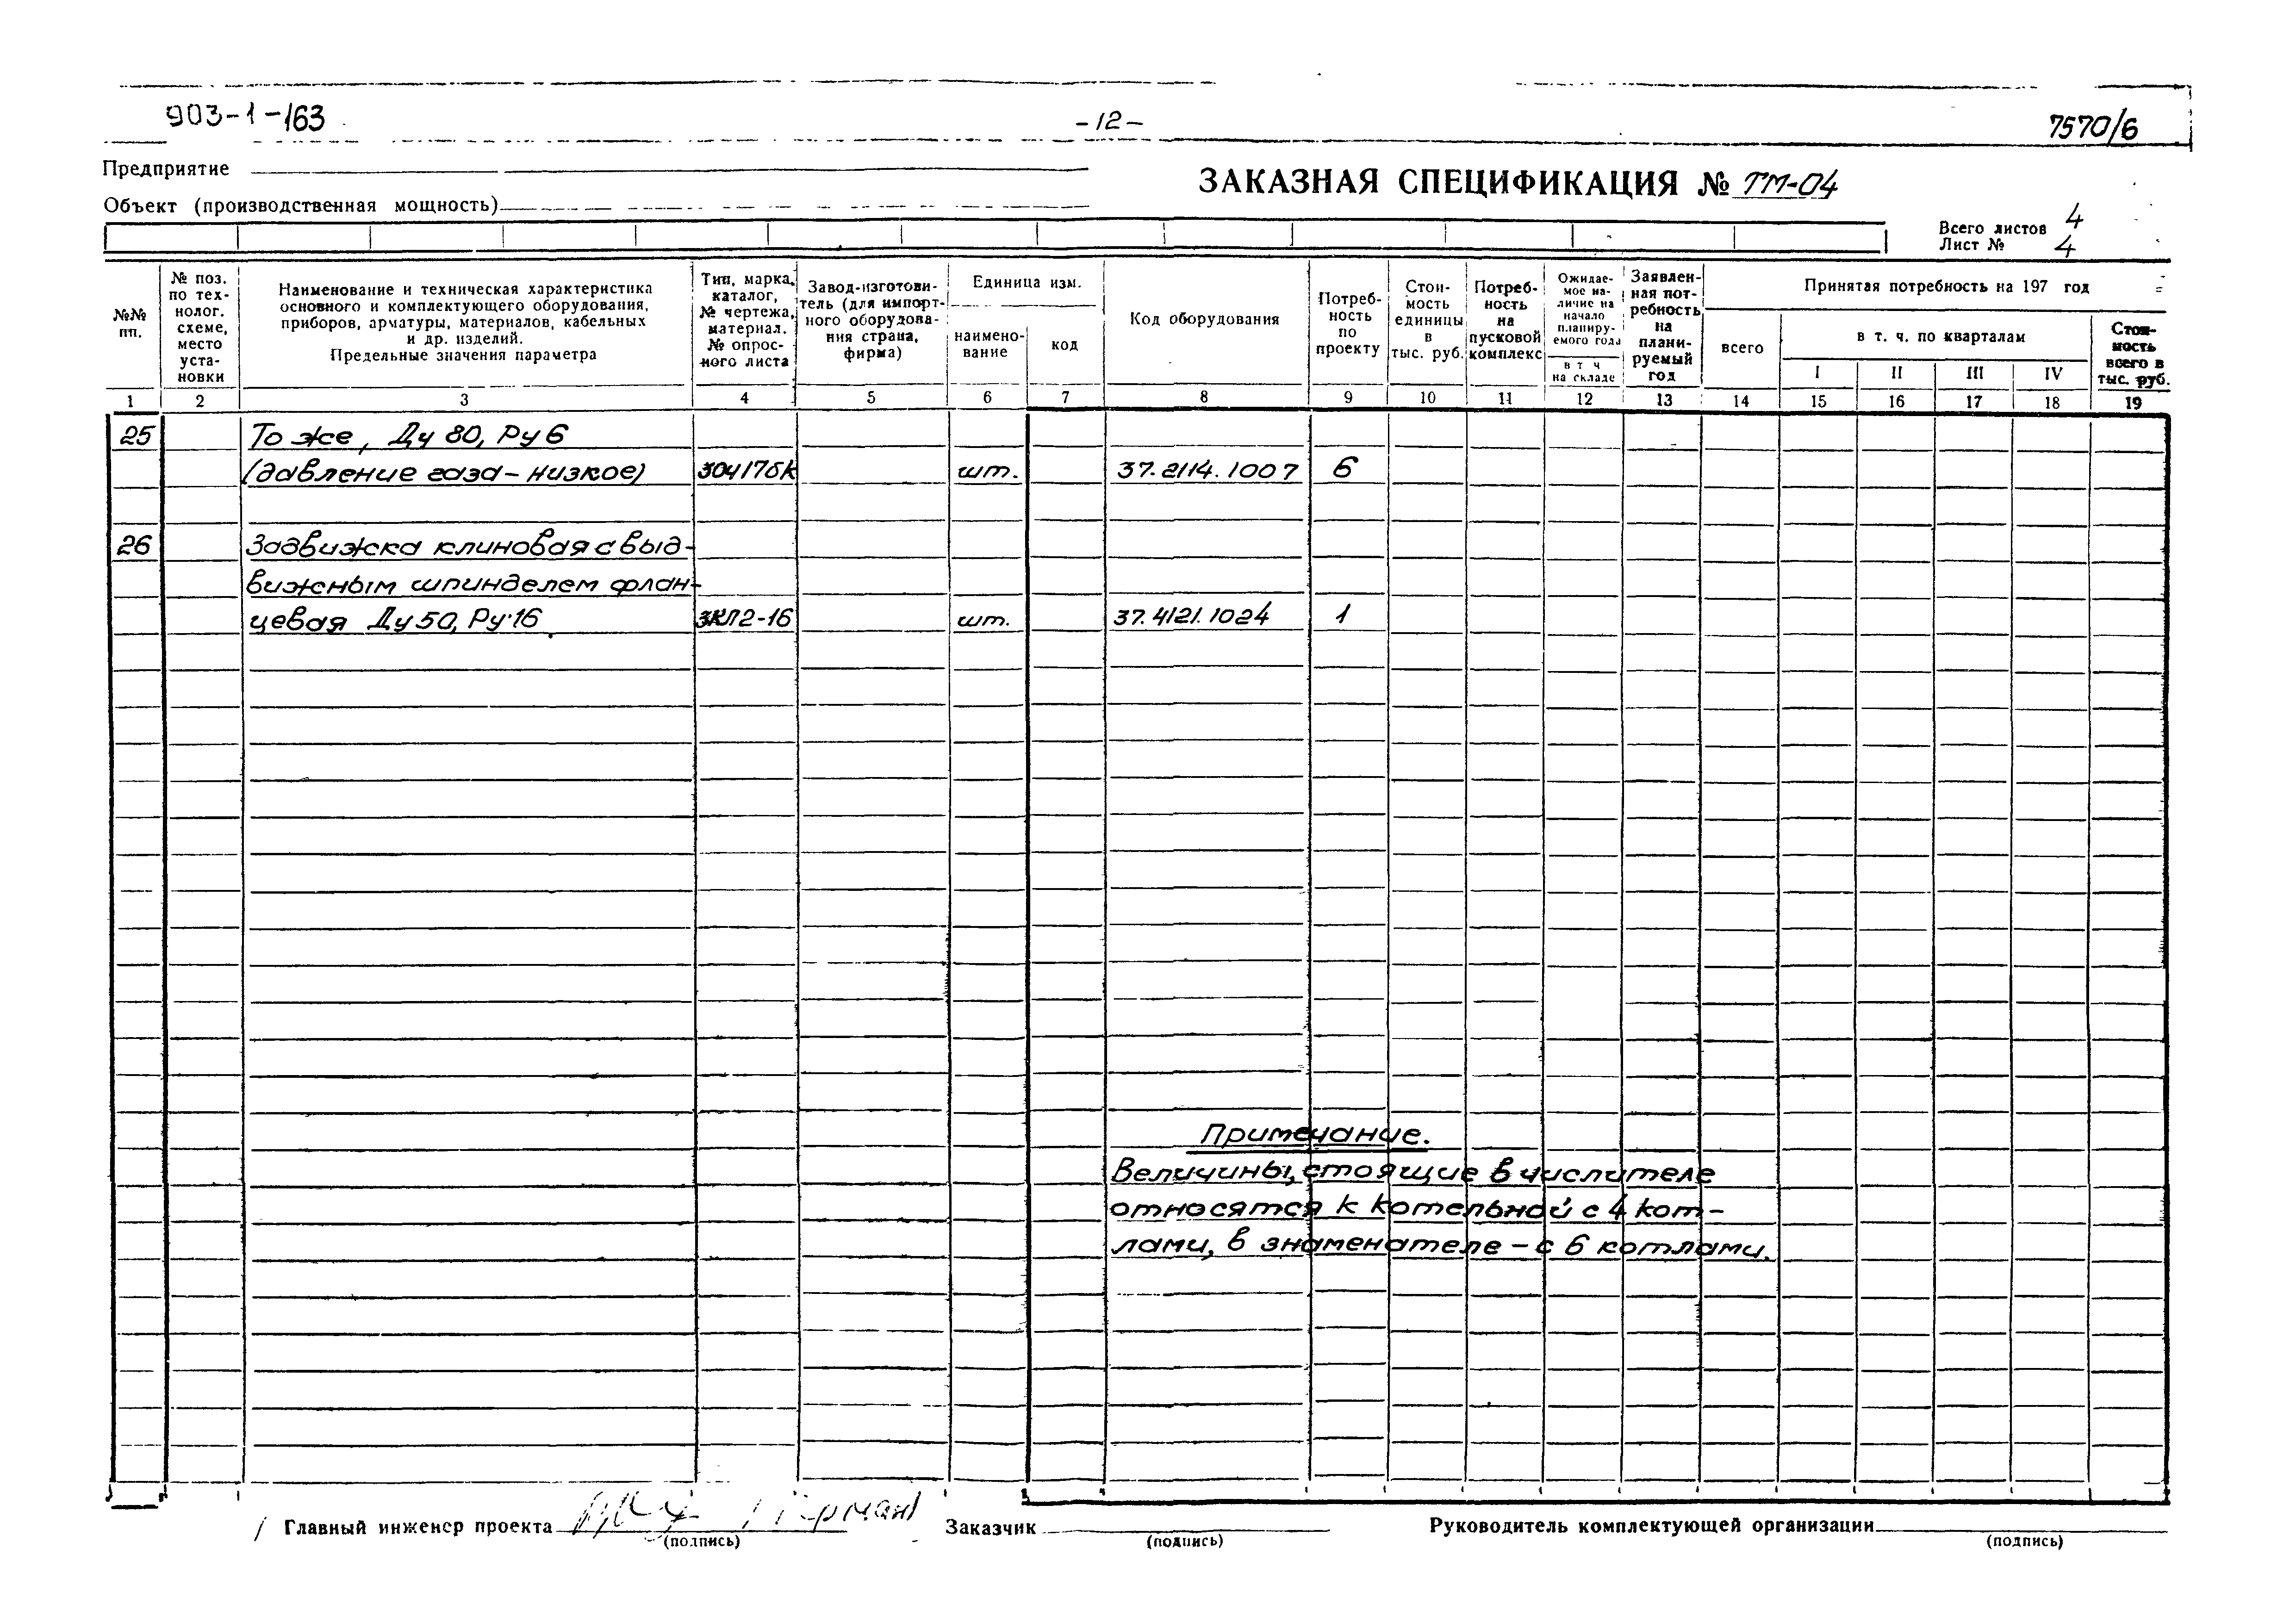 903-1-163
-12-
7570/6
Предприятие
ЗАКАЗНАЯ СПЕЦИФИКАЦИЯ № ТМ-04
Объект (производственная мощность)
Всего листов 4
Лист № 4
№№ пп.
№ поз. по тех- нолог. схеме, место уста- новки
Наименование и техническая характеристика основного и комплектующего оборудования, приборов, арматуры, материалов, кабельных и др. изделий. Предельные значения параметра
Тип, марка, каталог, № чертежа, материал. № опрос- ного листа
Завод-изготови- тель (для импорт- ного оборудова- ния страна, фирма)
Единица изм.
наимено- вание
код
Код оборудования
Потреб- ность по проекту
Стои- мость единицы в тыс. руб.
Потреб- ность на пусковой комплекс
Ожидае- мое на- личие на начало планиру- емого года
в т ч на складе
Заявлен- ная пот- ребность на плани- руемый год
Принятая потребность на 197 год
всего
в т. ч. по кварталам
I II III IV
Стои- мость всего в тыс. руб.
1 2 3 4 5 6 7 8 9 10 11 12 13 14 15 16 17 18 19
25 То же, Ду 80, Ру 6
(давление газа - низкое) 30ч17бк шт. 37.2114.1007 6
26 Задвижка клиновая с выд-
вижным шпинделем флан-
цевая Ду 50, Ру 16 ЗКЛ2-16 шт. 37.4121.1024 1
Примечание.
Величины, стоящие в числителе
относятся к котельной с 4 кот-
лами, в знаменателе - с 6 котлами.
Главный инженер проекта
Заказчик
Руководитель комплектующей организации
(подпись)
(подпись)
(подпись)